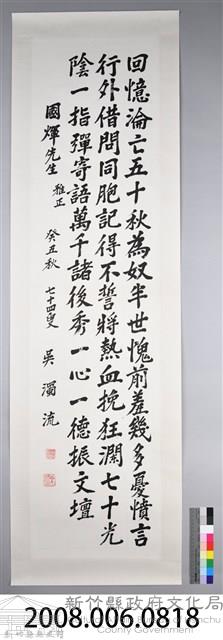 回憶淪亡五十秋為奴半世愧前羞幾多憂憤言
行外借問同胞記得不誓將熱血挽狂瀾七十光
陰一指彈寄語萬千諸後秀一心一德振文壇
國煇先生 雅正 癸丑秋 七十四叟 吳濁流
新竹縣政府文化局
County Government
2008.006.0818